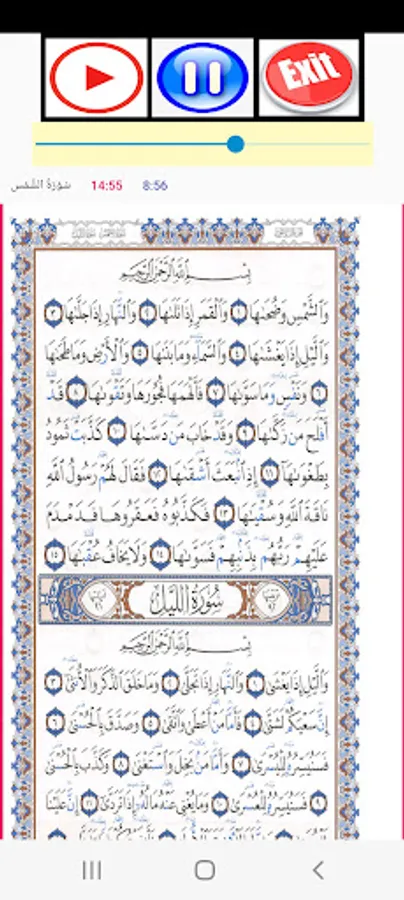 Exit
سورة الشمس 14:55 8:56
بِسْمِ اللَّهِ الرَّحْمَٰنِ الرَّحِيمِ
وَالشَّمْسِ وَضُحَىٰهَا ١ وَالْقَمَرِ إِذَا تَلَىٰهَا ٢ وَالنَّهَارِ إِذَا جَلَّىٰهَا ٣
وَاللَّيْلِ إِذَا يَغْشَىٰهَا ٤ وَالسَّمَاءِ وَمَا بَنَىٰهَا ٥ وَالْأَرْضِ وَمَا طَحَىٰهَا
٦ وَنَفْسٍ وَمَا سَوَّىٰهَا ٧ فَأَلْهَمَهَا فُجُورَهَا وَتَقْوَىٰهَا ٨ قَدْ
أَفْلَحَ مَن زَكَّىٰهَا ٩ وَقَدْ خَابَ مَن دَسَّىٰهَا ١٠ كَذَّبَتْ ثَمُودُ
بِطَغْوَىٰهَا ١١ إِذِ انبَعَثَ أَشْقَىٰهَا ١٢ فَقَالَ لَهُمْ رَسُولُ اللَّهِ
نَاقَةَ اللَّهِ وَسُقْيَٰهَا ١٣ فَكَذَّبُوهُ فَعَقَرُوهَا فَدَمْدَمَ
عَلَيْهِمْ رَبُّهُم بِذَنبِهِمْ فَسَوَّىٰهَا ١٤ وَلَا يَخَافُ عُقْبَٰهَا ١٥
سُورَةُ اللَّيْلِ
بِسْمِ اللَّهِ الرَّحْمَٰنِ الرَّحِيمِ
وَاللَّيْلِ إِذَا يَغْشَىٰ ١ وَالنَّهَارِ إِذَا تَجَلَّىٰ ٢ وَمَا خَلَقَ الذَّكَرَ وَالْأُنثَىٰ ٣
إِنَّ سَعْيَكُمْ لَشَتَّىٰ ٤ فَأَمَّا مَنْ أَعْطَىٰ وَاتَّقَىٰ ٥ وَصَدَّقَ بِالْحُسْنَىٰ ٦
فَسَنُيَسِّرُهُ لِلْيُسْرَىٰ ٧ وَأَمَّا مَن بَخِلَ وَاسْتَغْنَىٰ ٨ وَكَذَّبَ بِالْحُسْنَىٰ
٩ فَسَنُيَسِّرُهُ لِلْعُسْرَىٰ ١٠ وَمَا يُغْنِي عَنْهُ مَالُهُ إِذَا تَرَدَّىٰ ١١ إِنَّ عَلَيْنَا